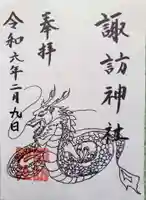 奉拝
諏訪神社
令和六年二月九日